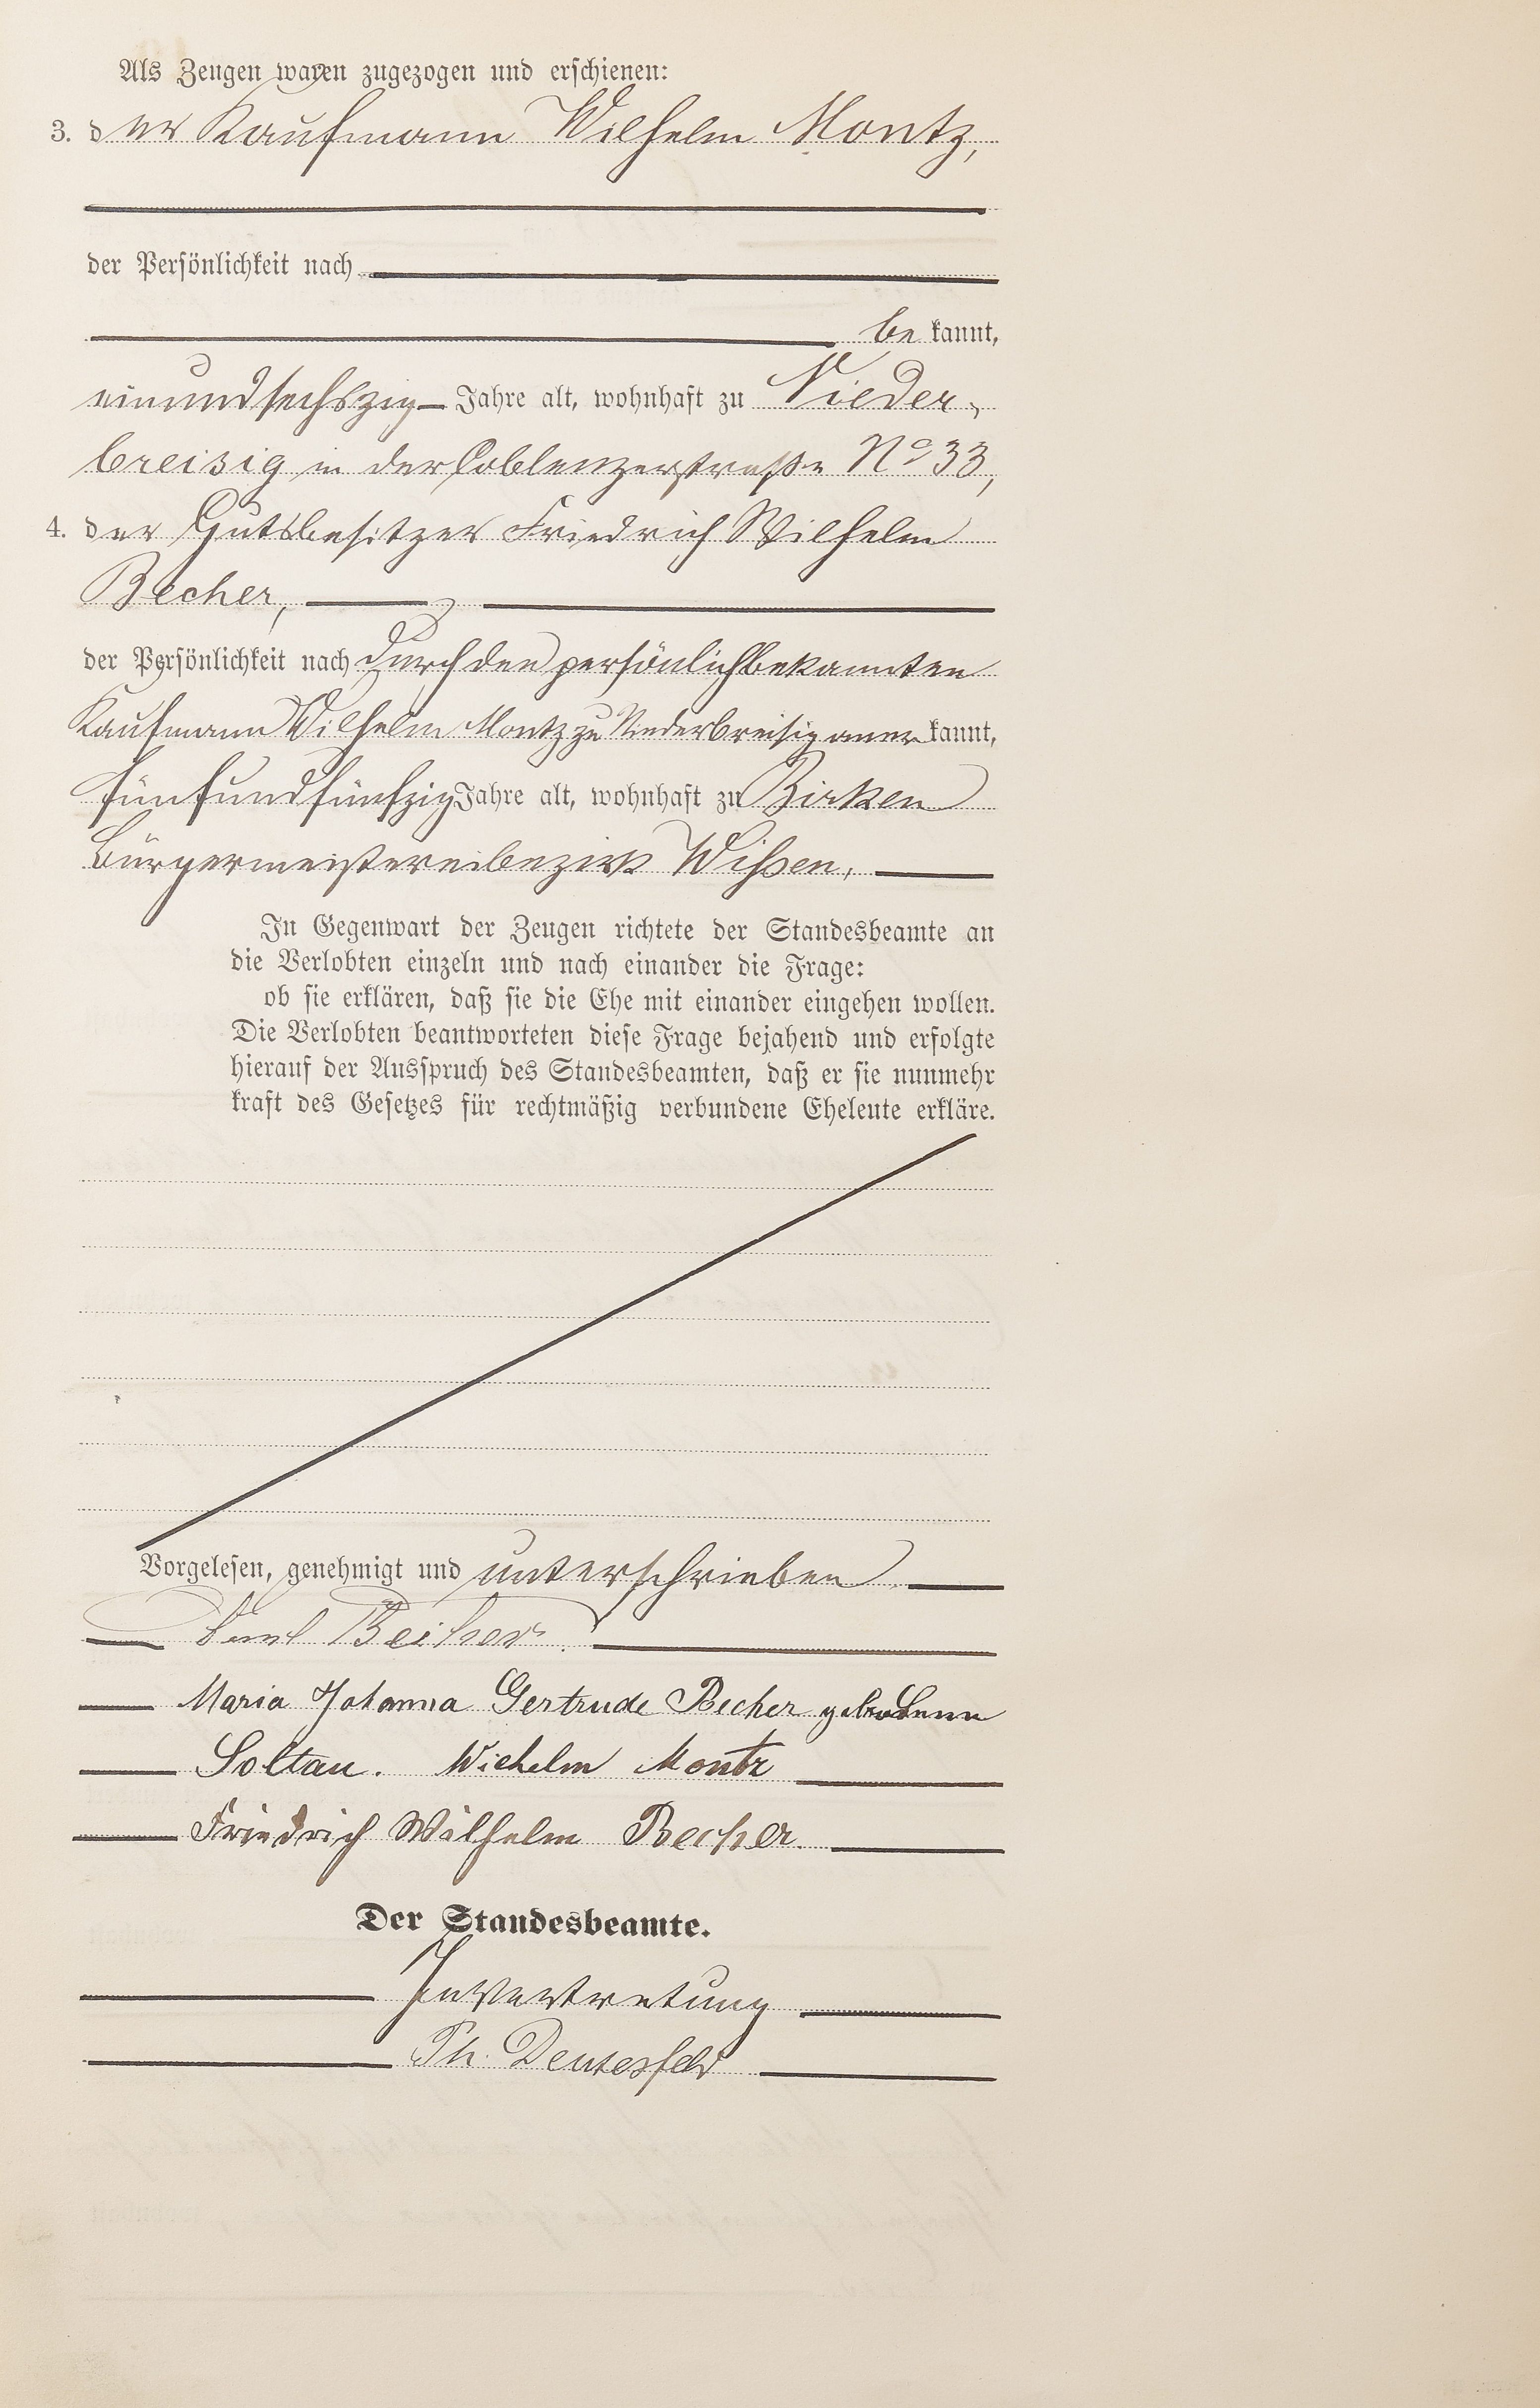 Als Zeugen waren zugezogen und erschienen:
3. der Kaufmann Wilhelm Montz,
der Persönlichkeit nach
be kannt,
einundsechszig Jahre alt, wohnhaft zu Nieder-
breisig in der Coblenzerstraße No 33,
4. der Gutsbesitzer Friedrich Wilhelm
Becher,
der Persönlichkeit nach durch den persönlich bekannten
Kaufmann Wilhelm Montz zu Niederbreisig aner kannt,
fünfundfünfzig Jahre alt, wohnhaft zu Birken
Bürgermeistereibezirk Wissen.
In Gegenwart der Zeugen richtete der Standesbeamte an
die Verlobten einzeln und nach einander die Frage:
ob sie erklären, daß sie die Ehe mit einander eingehen wollen.
Die Verlobten beantworteten diese Frage bejahend und erfolgte
hierauf der Ausspruch des Standesbeamten, daß er sie nunmehr
kraft des Gesetzes für rechtmäßig verbundene Eheleute erkläre.
Vorgelesen, genehmigt und unterschrieben
Becher
Maria Johanna Gertrude Becher geborene
Soltau. Wilhelm Montz
Friedrich Wilhelm Becher.
Der Standesbeamte.
In Vertretung
Ph.